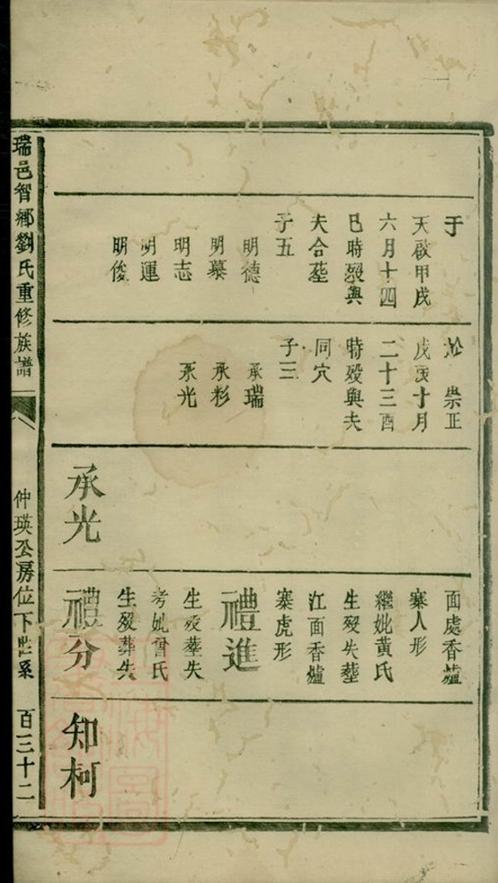 于
天啟甲戌
六月十四
巳時殁與
夫合塟
子五
明德
明慕
明志
明運
明俊
於崇正
戊寅十月
二十三酉
時殁與夫
同穴
子三
承瑞
承彩
承光
承光
面處香爐
寨人形
繼妣黃氏
生殁失塟
江面香爐
寨虎形
禮進
生殁塟失
考妣曾氏
生殁葬失
禮分
知柯
瑞邑智鄉劉氏重修族譜
仲瑛公房位下世系
百三十二